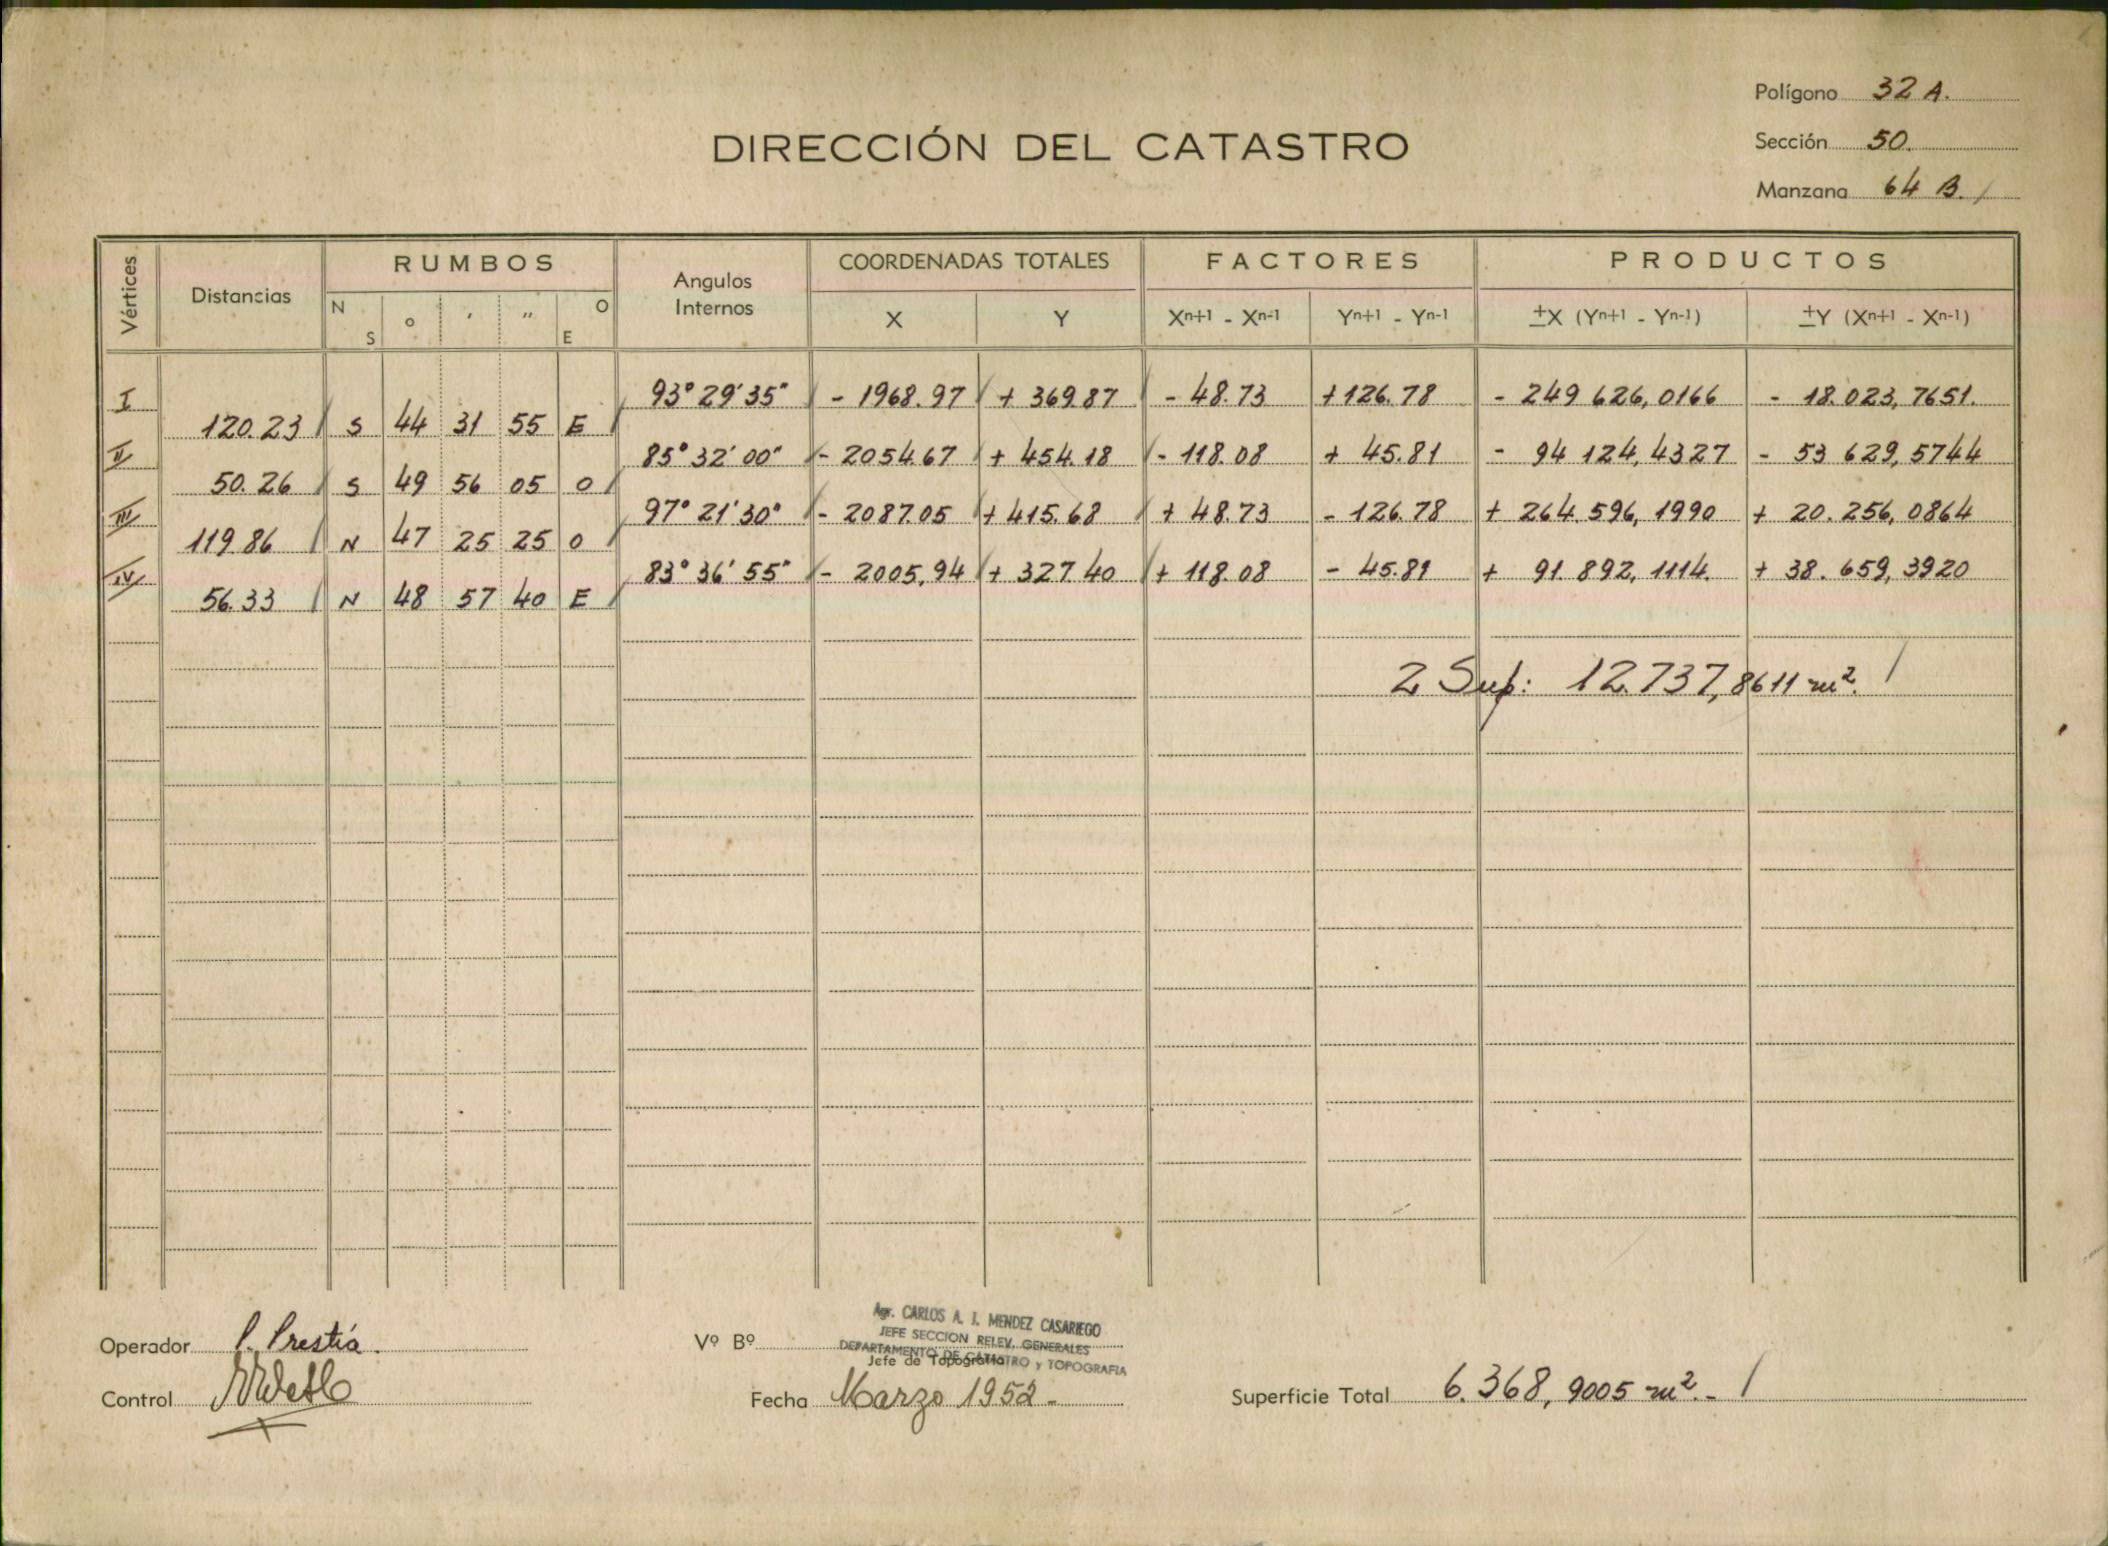 Polígono 32 A.
DIRECCIÓN DEL CATASTRO
Sección 50.
Manzana 64 B. /
Vértices Distancias RUMBOS Angulos Internos COORDENADAS TOTALES FACTORES PRODUCTOS
N S ° ' " O E X Y Xⁿ⁺¹ - Xⁿ⁻¹ Yⁿ⁺¹ - Yⁿ⁻¹ ±X (Yⁿ⁺¹ - Yⁿ⁻¹) ±Y (Xⁿ⁺¹ - Xⁿ⁻¹)
I 93° 29' 35" - 1968.97 + 369.87 - 48.73 + 126.78 - 249 626,0166 - 18.023,7651.
120.23 S 44 31 55 E
II 85° 32' 00" - 2054.67 + 454.18 - 118.08 + 45.81 - 94 124,4327 - 53 629,5744
50.26 S 49 56 05 O
III 97° 21' 30" - 2087.05 + 415.68 + 48.73 - 126.78 + 264.596,1990 + 20.256,0864
119.86 N 47 25 25 O
IV 83° 36' 55" - 2005,94 + 327.40 + 118.08 - 45.81 + 91.892,1114. + 38.659,3920
56.33 N 48 57 40 E
2 Sup: 12.737,8611 m². /
Operador P. Prestía.
Vº Bº
Agr. CARLOS A. J. MENDEZ CASARIEGO
JEFE SECCION RELEV. GENERALES
DEPARTAMENTO DE CATASTRO y TOPOGRAFIA
Jefe de Topografía
Control
Fecha Marzo 1952.-
Superficie Total 6.368,9005 m².- /